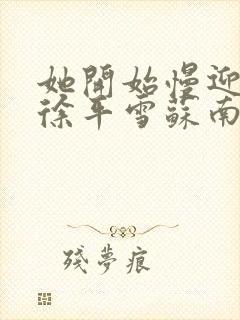 她開始慢迎
徐平雪蘇南
殘夢痕